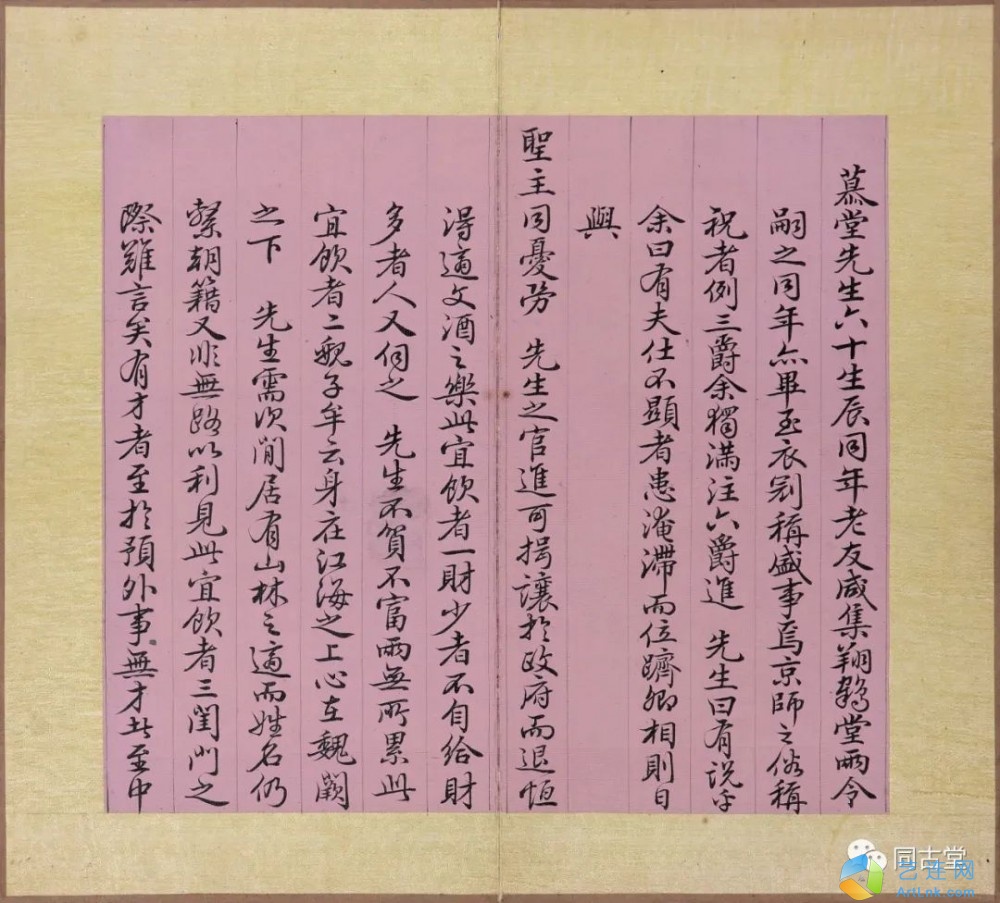 慕堂先生六十生辰同年老友咸集翔鶴堂兩令
嗣之同年亦畢至衣冠稱盛事焉京師之俗稱
祝者例三爵余獨滿注六爵進 先生曰有說乎
余曰有夫仕不顯者患淹滯而位躋卿相則日
與
聖主同憂勞 先生之官進可揖讓於政府而退恒
得適文酒之樂此宜飲者一財少者不自給財
多者人又伺之 先生不貧不富兩無所累此
宜飲者二魏子牟云身在江海之上心在魏闕
之下 先生需次閒居有山林之適而姓名仍
繫朝籍又非無路以利見此宜飲者三閨門之
際難言矣有才者至於預外事無才者至中
同古堂
艺连网
ArtLnk.com